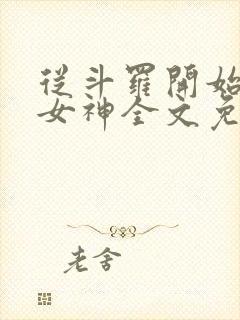 從斗羅開始
女神全文免
老舍